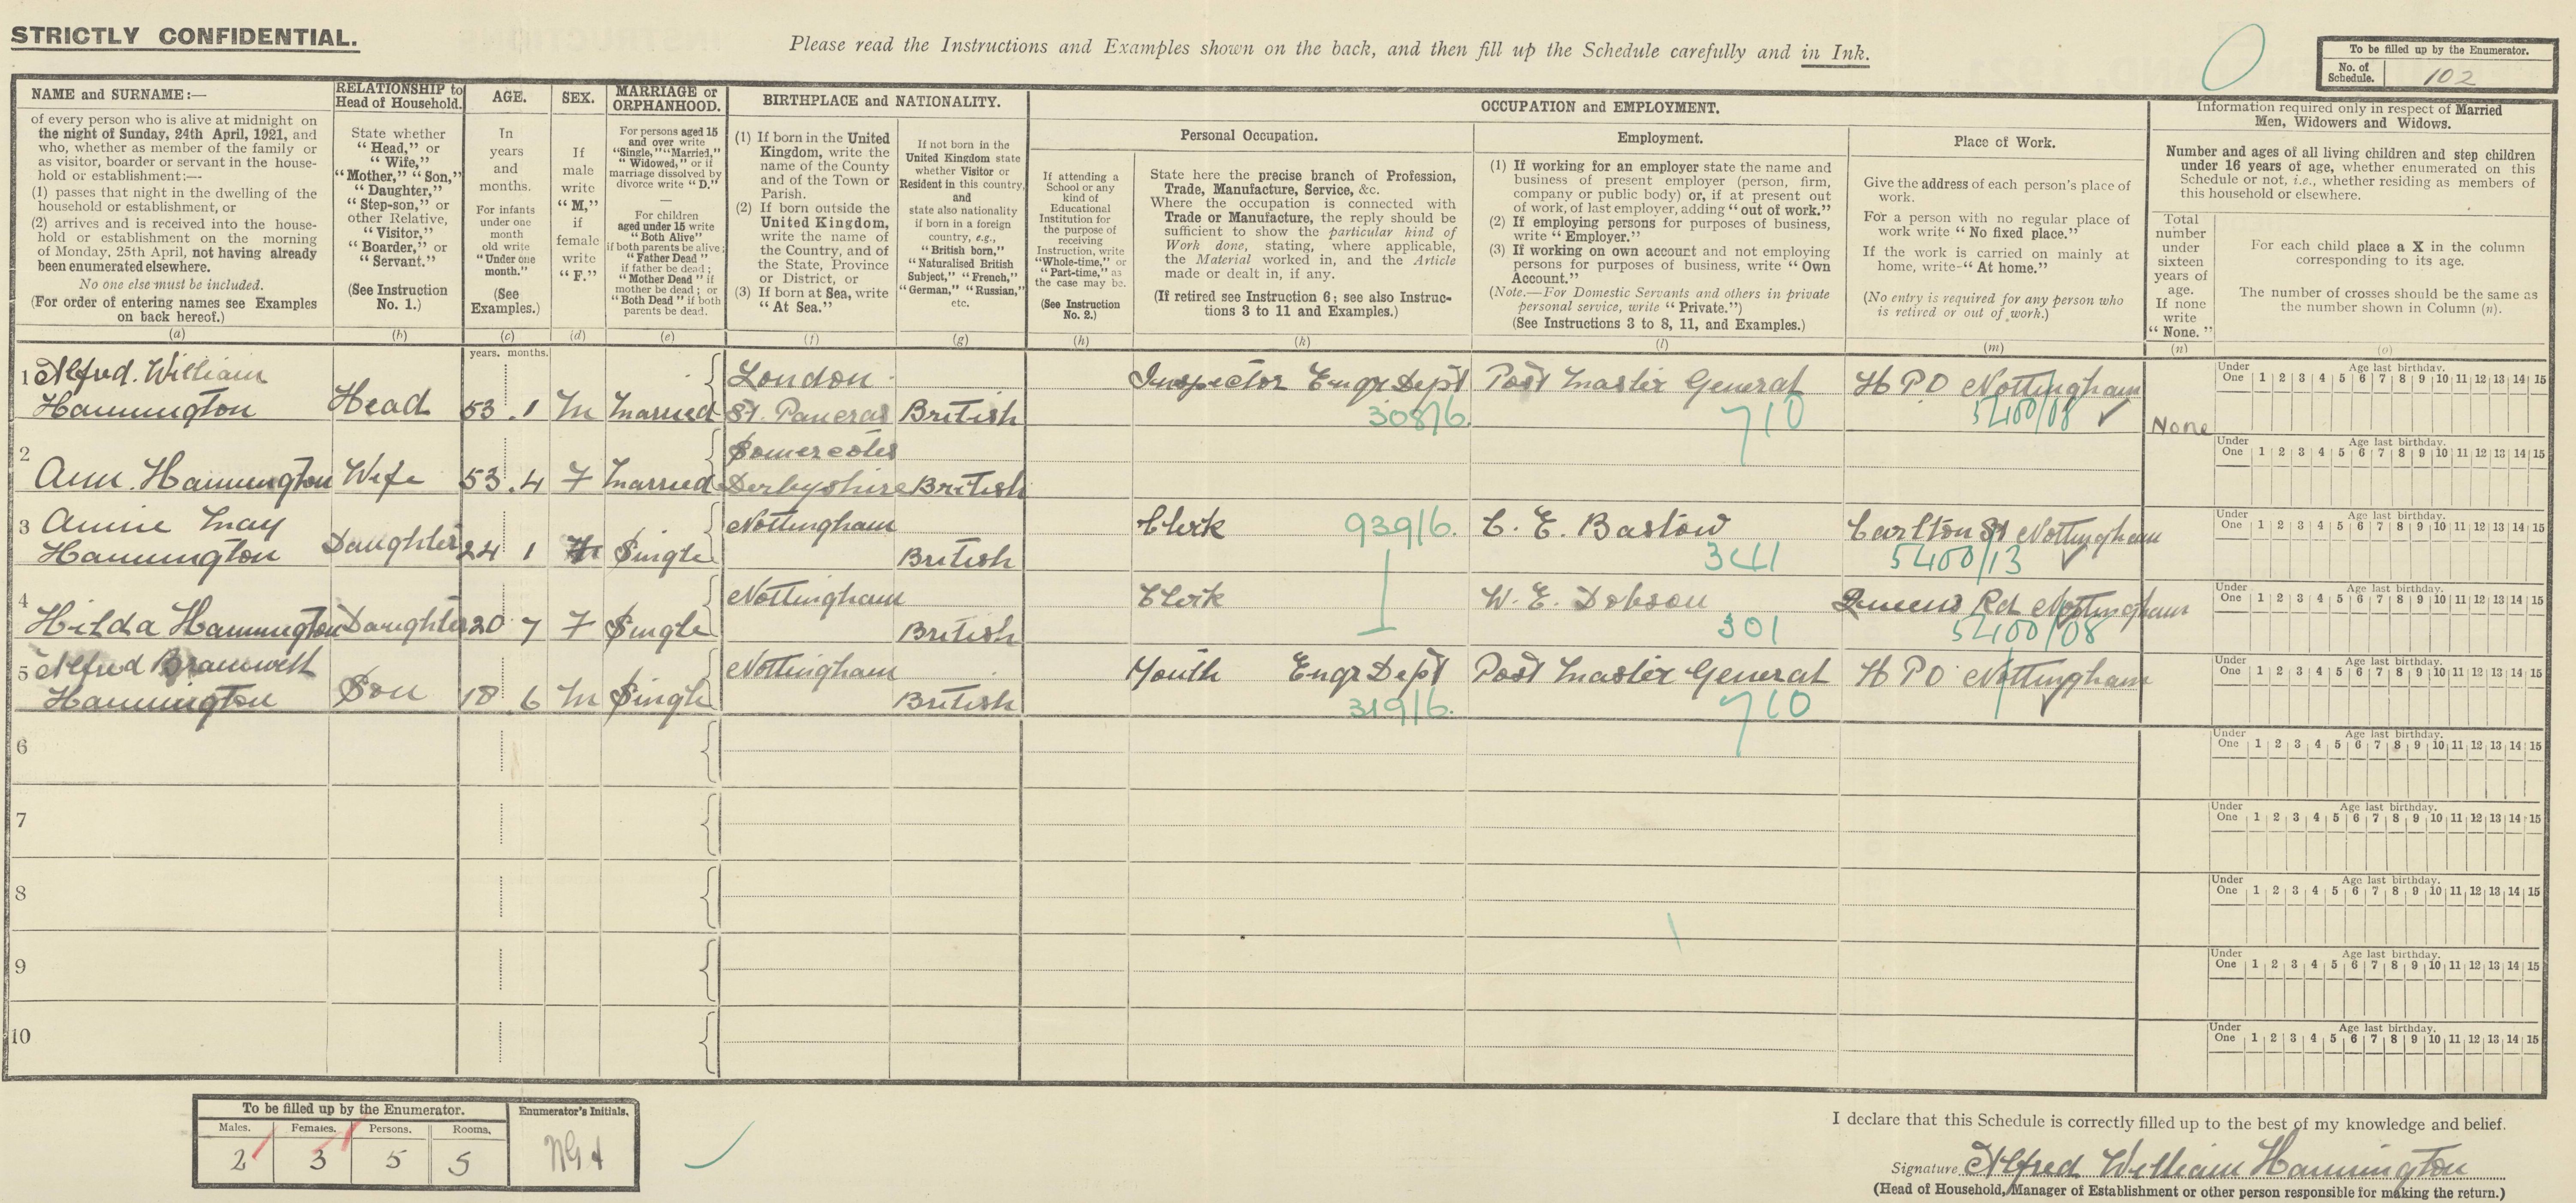 STRICTLY CONFIDENTIAL.
Please read the Instructions and Examples shown on the back, and then fill up the Schedule carefully and in Ink.
To be filled up by the Enumerator.
No. of Schedule. 102
NAME and SURNAME:—
of every person who is alive at midnight on
the night of Sunday, 24th April, 1921, and
who, whether as member of the family or
as visitor, boarder or servant in the house-
hold or establishment:—
(1) passes that night in the dwelling of the
household or establishment, or
(2) arrives and is received into the house-
hold or establishment on the morning
of Monday, 25th April, not having already
been enumerated elsewhere.
No one else must be included.
(For order of entering names see Examples
on back hereof.)
(a)
RELATIONSHIP to
Head of Household.
State whether
"Head," or
"Wife,"
"Mother," "Son,"
"Daughter,"
"Step-son," or
other Relative,
"Visitor,"
"Boarder," or
"Servant."
(See Instruction
No. 1.)
(b)
AGE.
In
years
and
months.
For infants
under one
month
old write
"Under one
month."
(See
Examples.)
(c)
SEX.
If
male
write
"M,"
if
female
write
"F."
(d)
MARRIAGE or
ORPHANHOOD.
For persons aged 15
and over write
"Single," "Married,"
"Widowed," or if
marriage dissolved by
divorce write "D."
—
For children
aged under 15 write
"Both Alive"
if both parents be alive;
"Father Dead"
if father be dead;
"Mother Dead" if
mother be dead; or
"Both Dead" if both
parents be dead.
(e)
BIRTHPLACE and NATIONALITY.
(1) If born in the United
Kingdom, write the
name of the County
and of the Town or
Parish.
(2) If born outside the
United Kingdom,
write the name of
the Country, and of
the State, Province
or District, or
(3) If born at Sea, write
"At Sea."
(f)
If not born in the
United Kingdom state
whether Visitor or
Resident in this country,
and
state also nationality
if born in a foreign
country, e.g.,
"British born,"
"Naturalised British
Subject," "French,"
"German," "Russian,"
etc.
(g)
OCCUPATION and EMPLOYMENT.
If attending a
School or any
kind of
Educational
Institution for
the purpose of
receiving
Instruction, write
"Whole-time," or
"Part-time," as
the case may be.
(See Instruction
No. 2.)
(h)
Personal Occupation.
State here the precise branch of Profession,
Trade, Manufacture, Service, &c.
Where the occupation is connected with
Trade or Manufacture, the reply should be
sufficient to show the particular kind of
Work done, stating, where applicable,
the Material worked in, and the Article
made or dealt in, if any.
(If retired see Instruction 6; see also Instruc-
tions 3 to 11 and Examples.)
(k)
Employment.
(1) If working for an employer state the name and
business of present employer (person, firm,
company or public body) or, if at present out
of work, of last employer, adding "out of work."
(2) If employing persons for purposes of business,
write "Employer."
(3) If working on own account and not employing
persons for purposes of business, write "Own
Account."
(Note.—For Domestic Servants and others in private
personal service, write "Private.")
(See Instructions 3 to 8, 11, and Examples.)
(l)
Place of Work.
Give the address of each person's place of
work.
For a person with no regular place of
work write "No fixed place."
If the work is carried on mainly at
home, write—"At home."
(No entry is required for any person who
is retired or out of work.)
(m)
Information required only in respect of Married
Men, Widowers and Widows.
Number and ages of all living children and step children
under 16 years of age, whether enumerated on this
Schedule or not, i.e., whether residing as members of
this household or elsewhere.
Total
number
under
sixteen
years of
age.
If none
write
"None."
(n)
For each child place a X in the column
corresponding to its age.
The number of crosses should be the same as
the number shown in Column (n).
(o)
years. months.
1 Alfred. William Hannington Head 53.1 M Married London St. Pancras British Inspector Engr Dept 308/6. Post Master General 710 H P O Nottingham 5400/08 None
Under One 1 2 3 4 5 6 7 8 9 10 11 12 13 14 15 Age last birthday.
2 Ann. Hannington Wife 53.4 F Married Somercotes Derbyshire British
Under One 1 2 3 4 5 6 7 8 9 10 11 12 13 14 15 Age last birthday.
3 Annie May Hannington Daughter 24 1 Single Nottingham British Clerk 939/6. C. E. Bastow 341 Carlton St Nottingham 5400/13
Under One 1 2 3 4 5 6 7 8 9 10 11 12 13 14 15 Age last birthday.
4 Hilda Hannington Daughter 20 7 F Single Nottingham British Clerk W. E. Dobson 301 Queens Rd Nottingham 5400/08
Under One 1 2 3 4 5 6 7 8 9 10 11 12 13 14 15 Age last birthday.
5 Alfred Bramwell Hannington Son 18.6 M Single Nottingham British Youth Engr Dept 319/6. Post Master General 710 H P O Nottingham
Under One 1 2 3 4 5 6 7 8 9 10 11 12 13 14 15 Age last birthday.
6
Under One 1 2 3 4 5 6 7 8 9 10 11 12 13 14 15 Age last birthday.
7
Under One 1 2 3 4 5 6 7 8 9 10 11 12 13 14 15 Age last birthday.
8
Under One 1 2 3 4 5 6 7 8 9 10 11 12 13 14 15 Age last birthday.
9
Under One 1 2 3 4 5 6 7 8 9 10 11 12 13 14 15 Age last birthday.
10
Under One 1 2 3 4 5 6 7 8 9 10 11 12 13 14 15 Age last birthday.
To be filled up by the Enumerator.
Males. Females. Persons. Rooms.
2 3 5 5
Enumerator's Initials.
I declare that this Schedule is correctly filled up to the best of my knowledge and belief.
Signature Alfred William Hannington
(Head of Household, Manager of Establishment or other person responsible for making the return.)